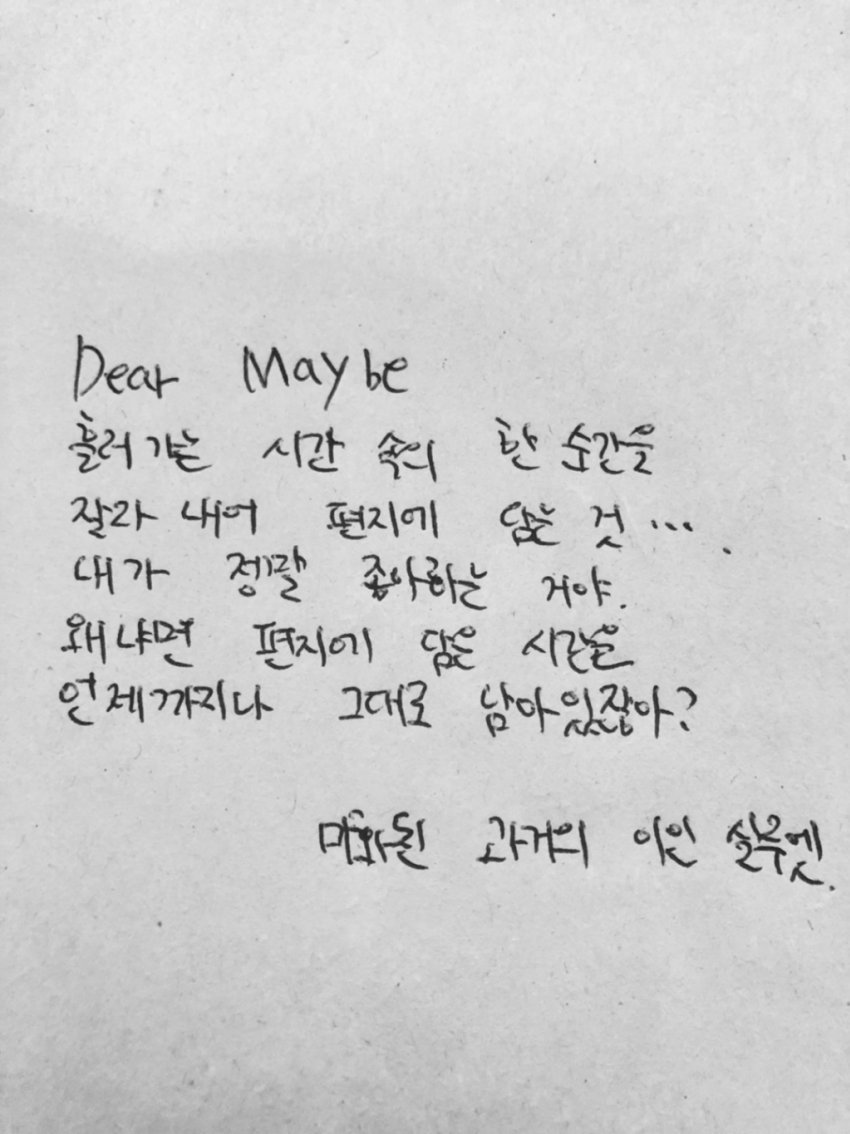 Dear Maybe
흘러가는 시간 속의 한 순간을
잘라 내어 편지에 담는 것....
내가 정말 좋아하는 거야.
왜냐면 편지에 담은 시간을
언제까지나 그대로 남아있잖아?
미화된 과거의 이인 실루엣.